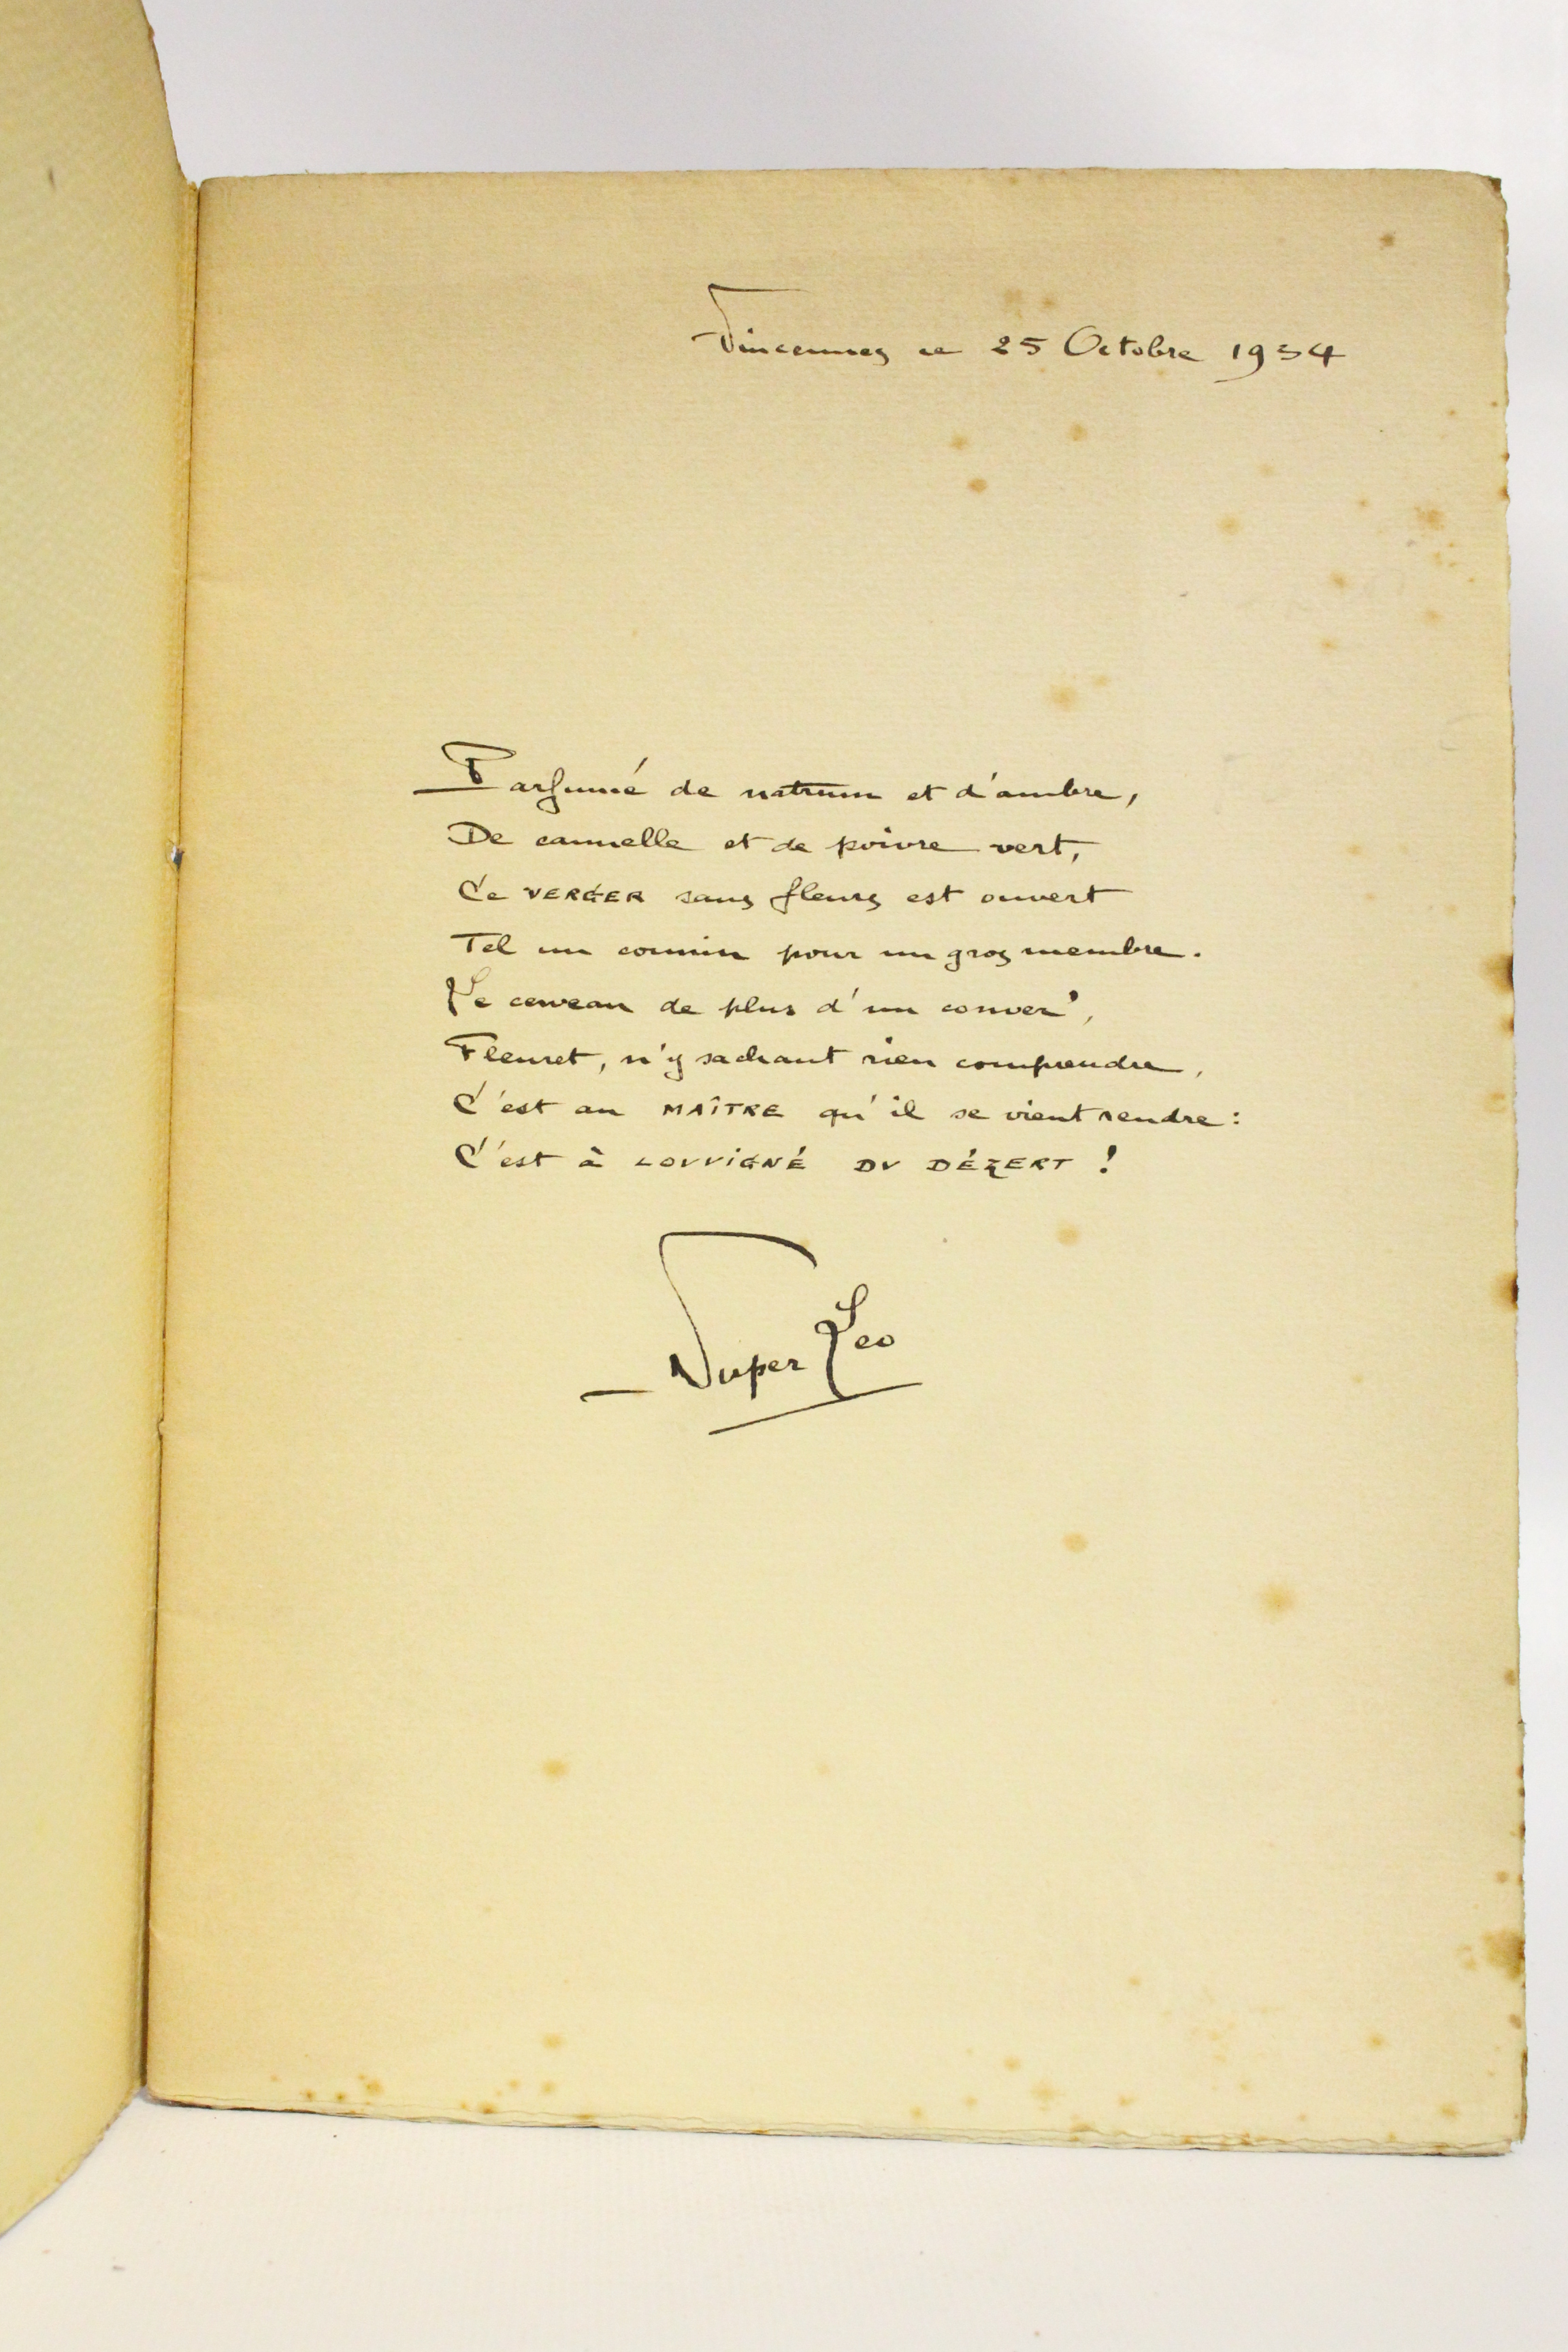 Vincennes ce 25 Octobre 1934
Parfumé de natrum et d'ambre,
De cannelle et de poivre vert,
Ce VERGER sans fleurs est ouvert
Tel un connin pour un gros membre.
Le cerveau de plus d'un conver',
Fleuret, n'y sachant rien comprendre,
C'est au MAÎTRE qu'il se vient rendre :
C'est à LOVVIGNÉ DV DÉZERT !
Super Leo